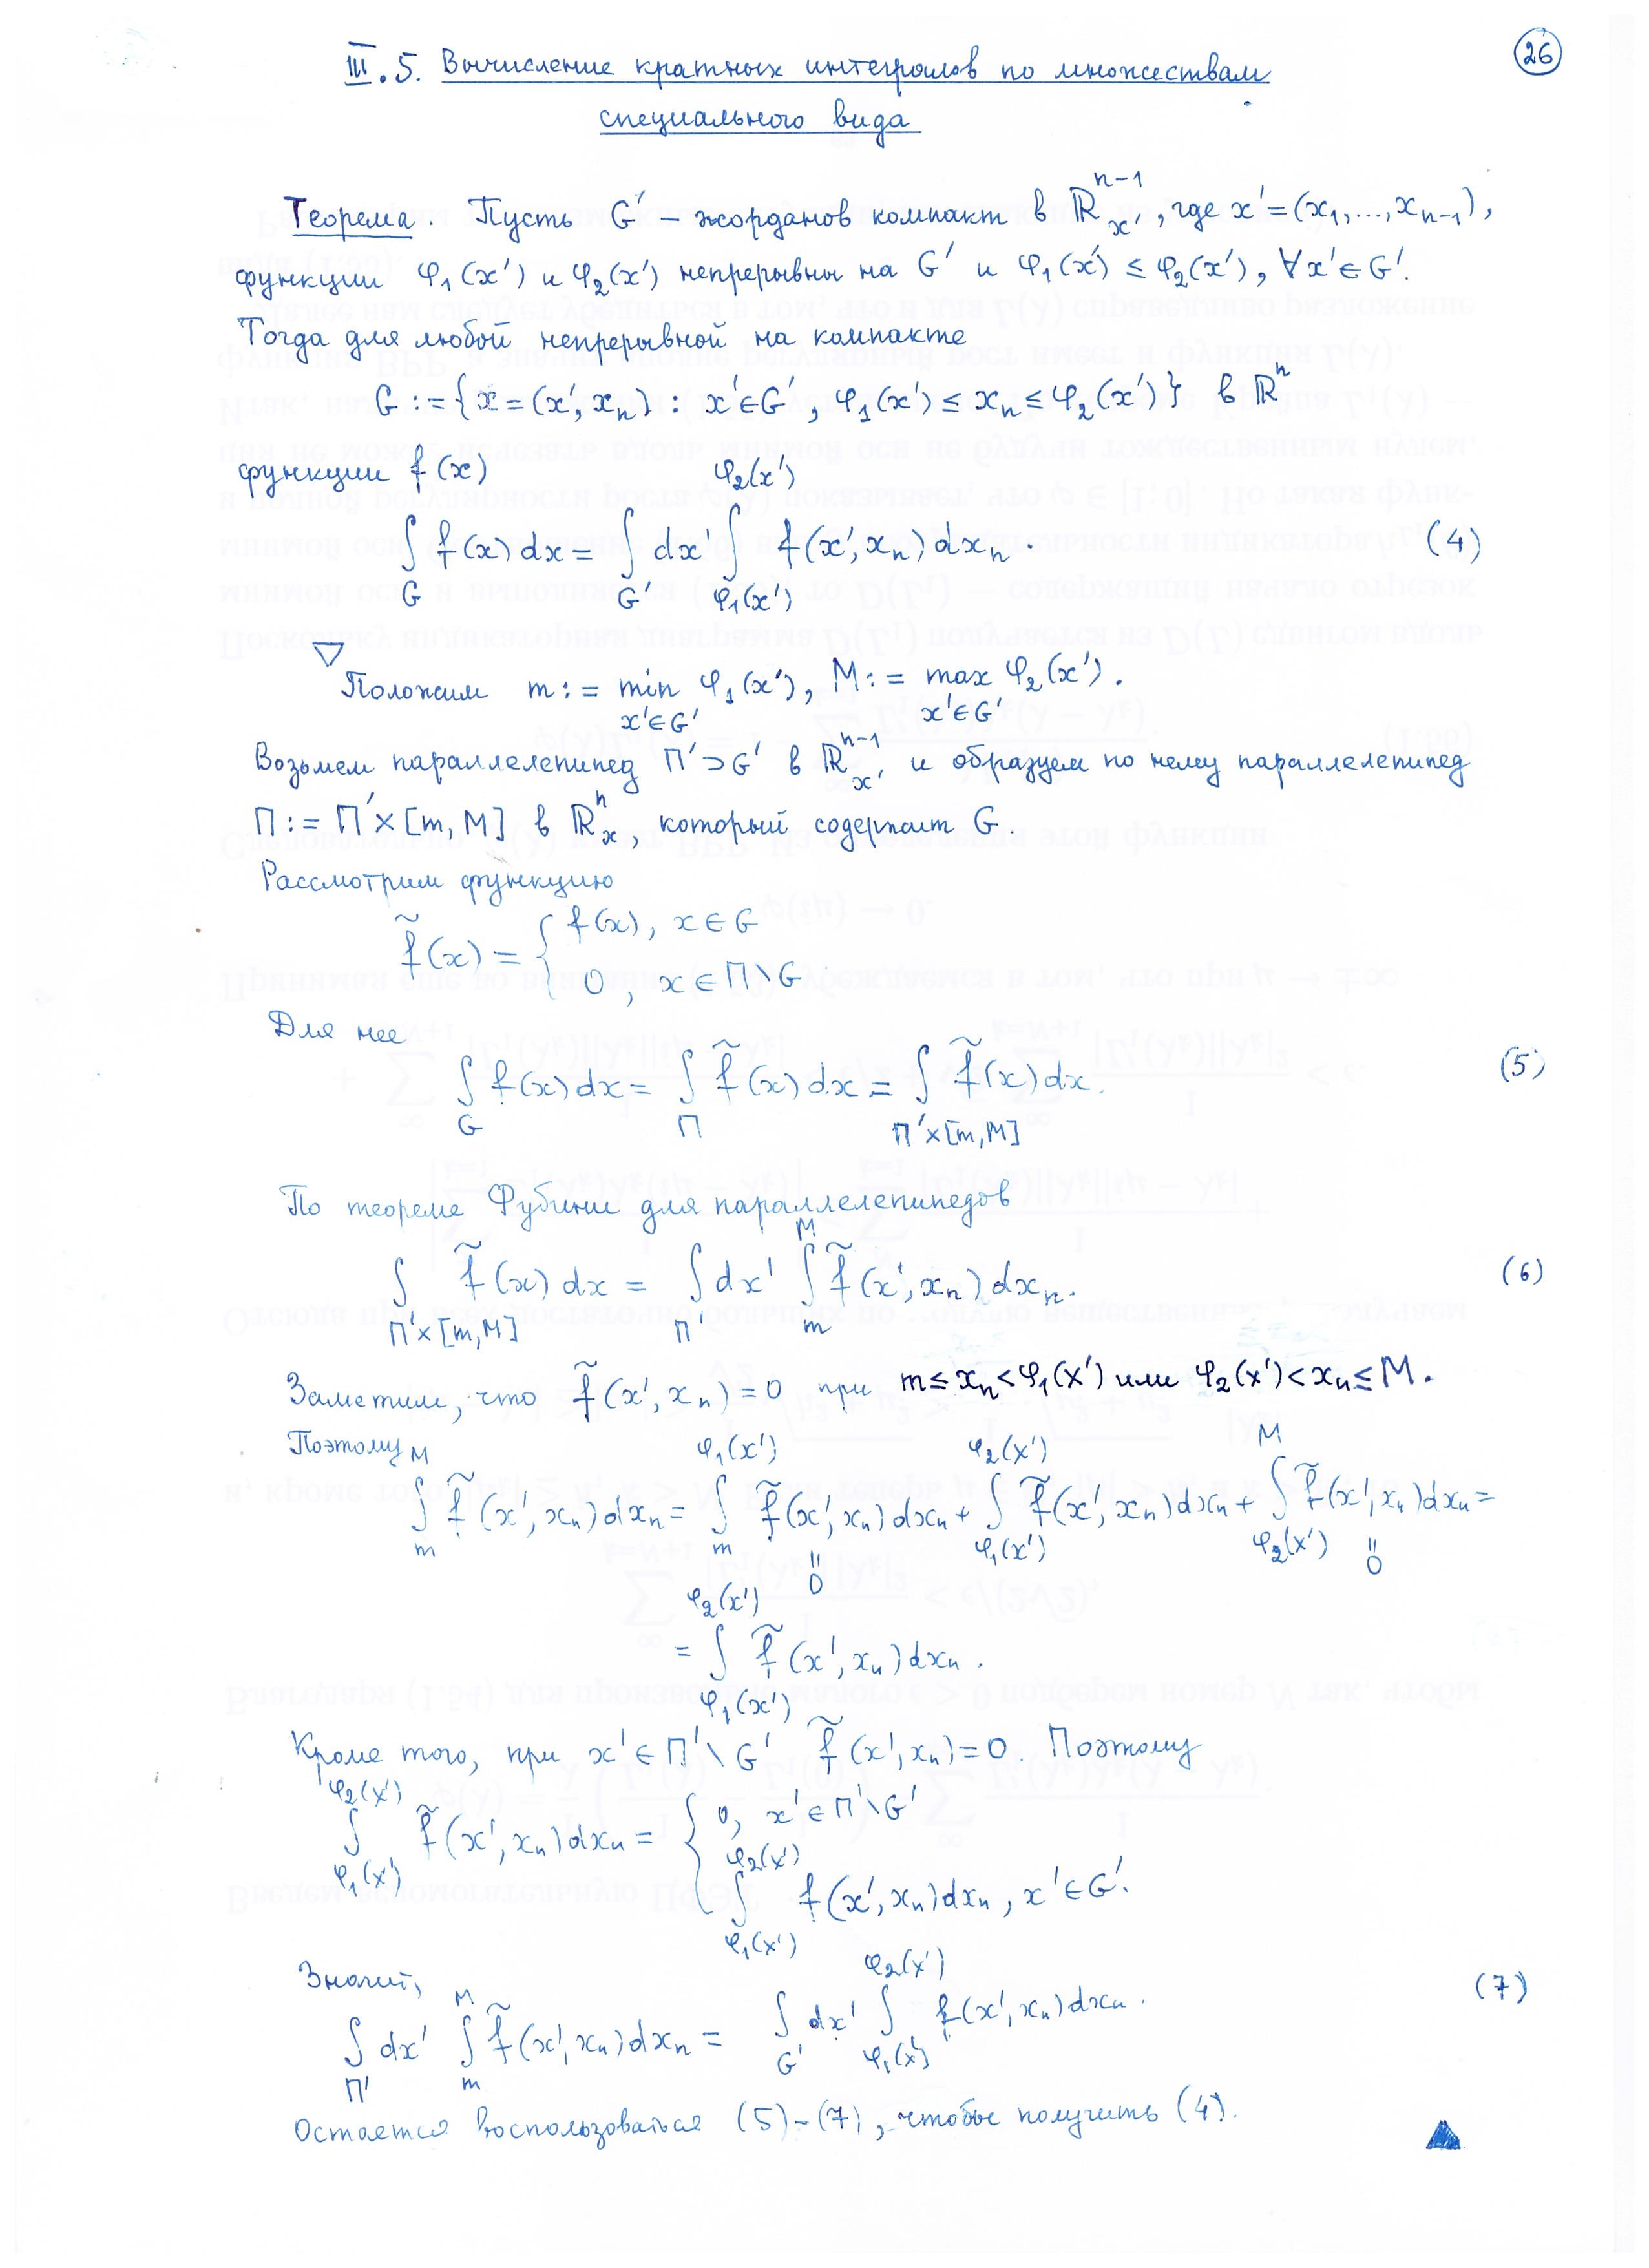 26
III.5. Вычисление кратных интегралов по множествам
специального вида
Теорема. Пусть G′ – жорданов компакт в ℝ^{n-1}_{x′}, где x′=(x₁,...,x_{n-1}),
функции φ₁(x′) и φ₂(x′) непрерывны на G′ и φ₁(x′) ≤ φ₂(x′), ∀x′∈G′.
Тогда для любой непрерывной на компакте
G := {x=(x′,xₙ) : x′∈G′, φ₁(x′) ≤ xₙ ≤ φ₂(x′)} в ℝⁿ
функции f(x)
∫_G f(x)dx = ∫_{G′} dx′ ∫_{φ₁(x′)}^{φ₂(x′)} f(x′,xₙ)dxₙ. (4)
▽
Положим m := min_{x′∈G′} φ₁(x′), M := max_{x′∈G′} φ₂(x′).
Возьмем параллелепипед П′⊃G′ в ℝ^{n-1}_{x′} и образуем по нему параллелепипед
П := П′×[m,M] в ℝⁿₓ, который содержит G.
Рассмотрим функцию
f̃(x) = { f(x), x∈G
0, x∈П\G
Для нее
∫_G f(x)dx = ∫_П f̃(x)dx = ∫_{П′×[m,M]} f̃(x)dx. (5)
По теореме Фубини для параллелепипедов
∫_{П′×[m,M]} f̃(x)dx = ∫_{П′} dx′ ∫_m^M f̃(x′,xₙ)dxₙ. (6)
Заметим, что f̃(x′,xₙ)=0 при m≤xₙ<φ₁(x′) или φ₂(x′)<xₙ≤M.
Поэтому
∫_m^M f̃(x′,xₙ)dxₙ = ∫_m^{φ₁(x′)} f̃(x′,xₙ)dxₙ + ∫_{φ₁(x′)}^{φ₂(x′)} f̃(x′,xₙ)dxₙ + ∫_{φ₂(x′)}^M f̃(x′,xₙ)dxₙ =
" 0 " 0
= ∫_{φ₁(x′)}^{φ₂(x′)} f̃(x′,xₙ)dxₙ.
Кроме того, при x′∈П′\G′ f̃(x′,xₙ)=0. Поэтому
∫_{φ₁(x′)}^{φ₂(x′)} f̃(x′,xₙ)dxₙ = { 0, x′∈П′\G′
∫_{φ₁(x′)}^{φ₂(x′)} f(x′,xₙ)dxₙ, x′∈G′.
Значит,
∫_{П′} dx′ ∫_m^M f̃(x′,xₙ)dxₙ = ∫_{G′} dx′ ∫_{φ₁(x′)}^{φ₂(x′)} f(x′,xₙ)dxₙ. (7)
Остается воспользоваться (5)-(7), чтобы получить (4).
▲